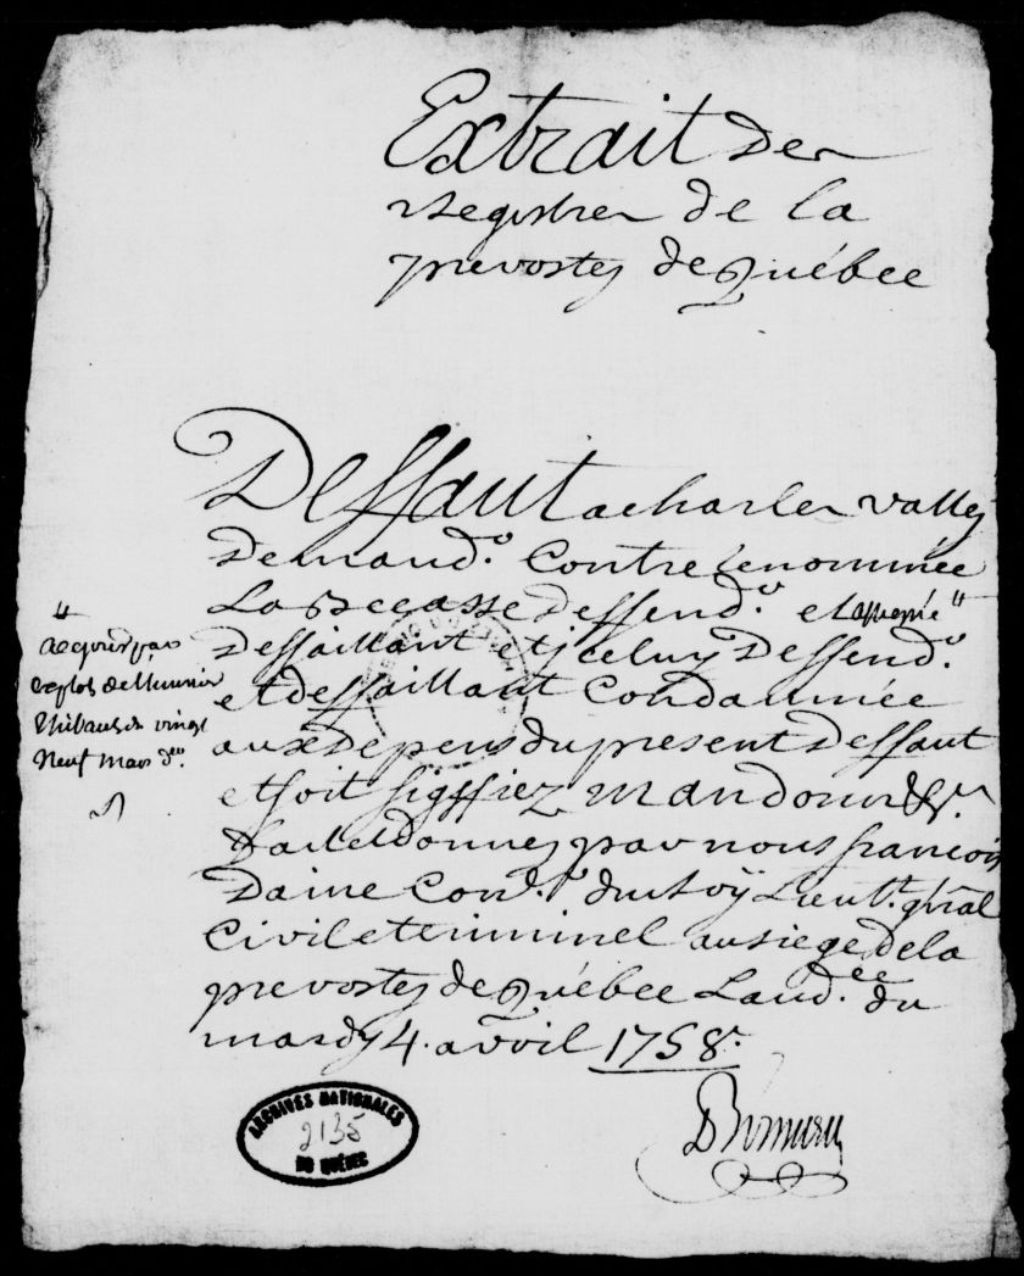 Extrait des
Registres de la
prevostey de Québec
Deffaut a charles valley
demand.r Contre le nommée
La Becasse deffend.r et assignée "
deffaillant et jceluy deffend.r
et deffaillant Condamnée
aux depens du present deffaut
et soit sigffiez mandons &c.a
fait et donney par nous francois
daine Con.er du Roÿ Lieut.t gn̄al
Civil et criminel au siege de la
prevostey de Québec Laud.ce du
mardy 4. avril 1758.
"
a ce jour par
exploit de
Thibault du vingt
Neuf mars d.er
ARCHIVES NATIONALES
2135
DU QUÉBEC